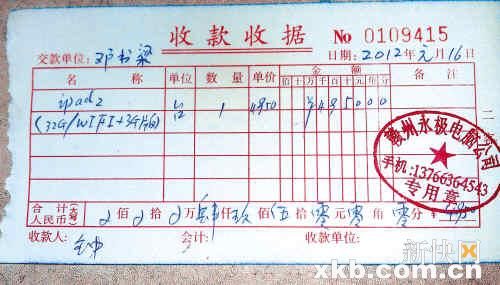 收款收据 No 0109415
交款单位: 邓书梁 日期: 2012年元月16日
名 称 单位 数量 单价 金额 备注
佰十万千百十元角分
ipad2 台 1 4950 ¥495000
(32G/WIFI+3G版)
赣州永极电脑公司
手机:13766364543
专用章
合计(大写)人民币 佰 拾 万 肆仟玖佰伍拾零元零角零分 ¥4950
收款人: 会计: 收款单位:
新快网
xkb.com.cn